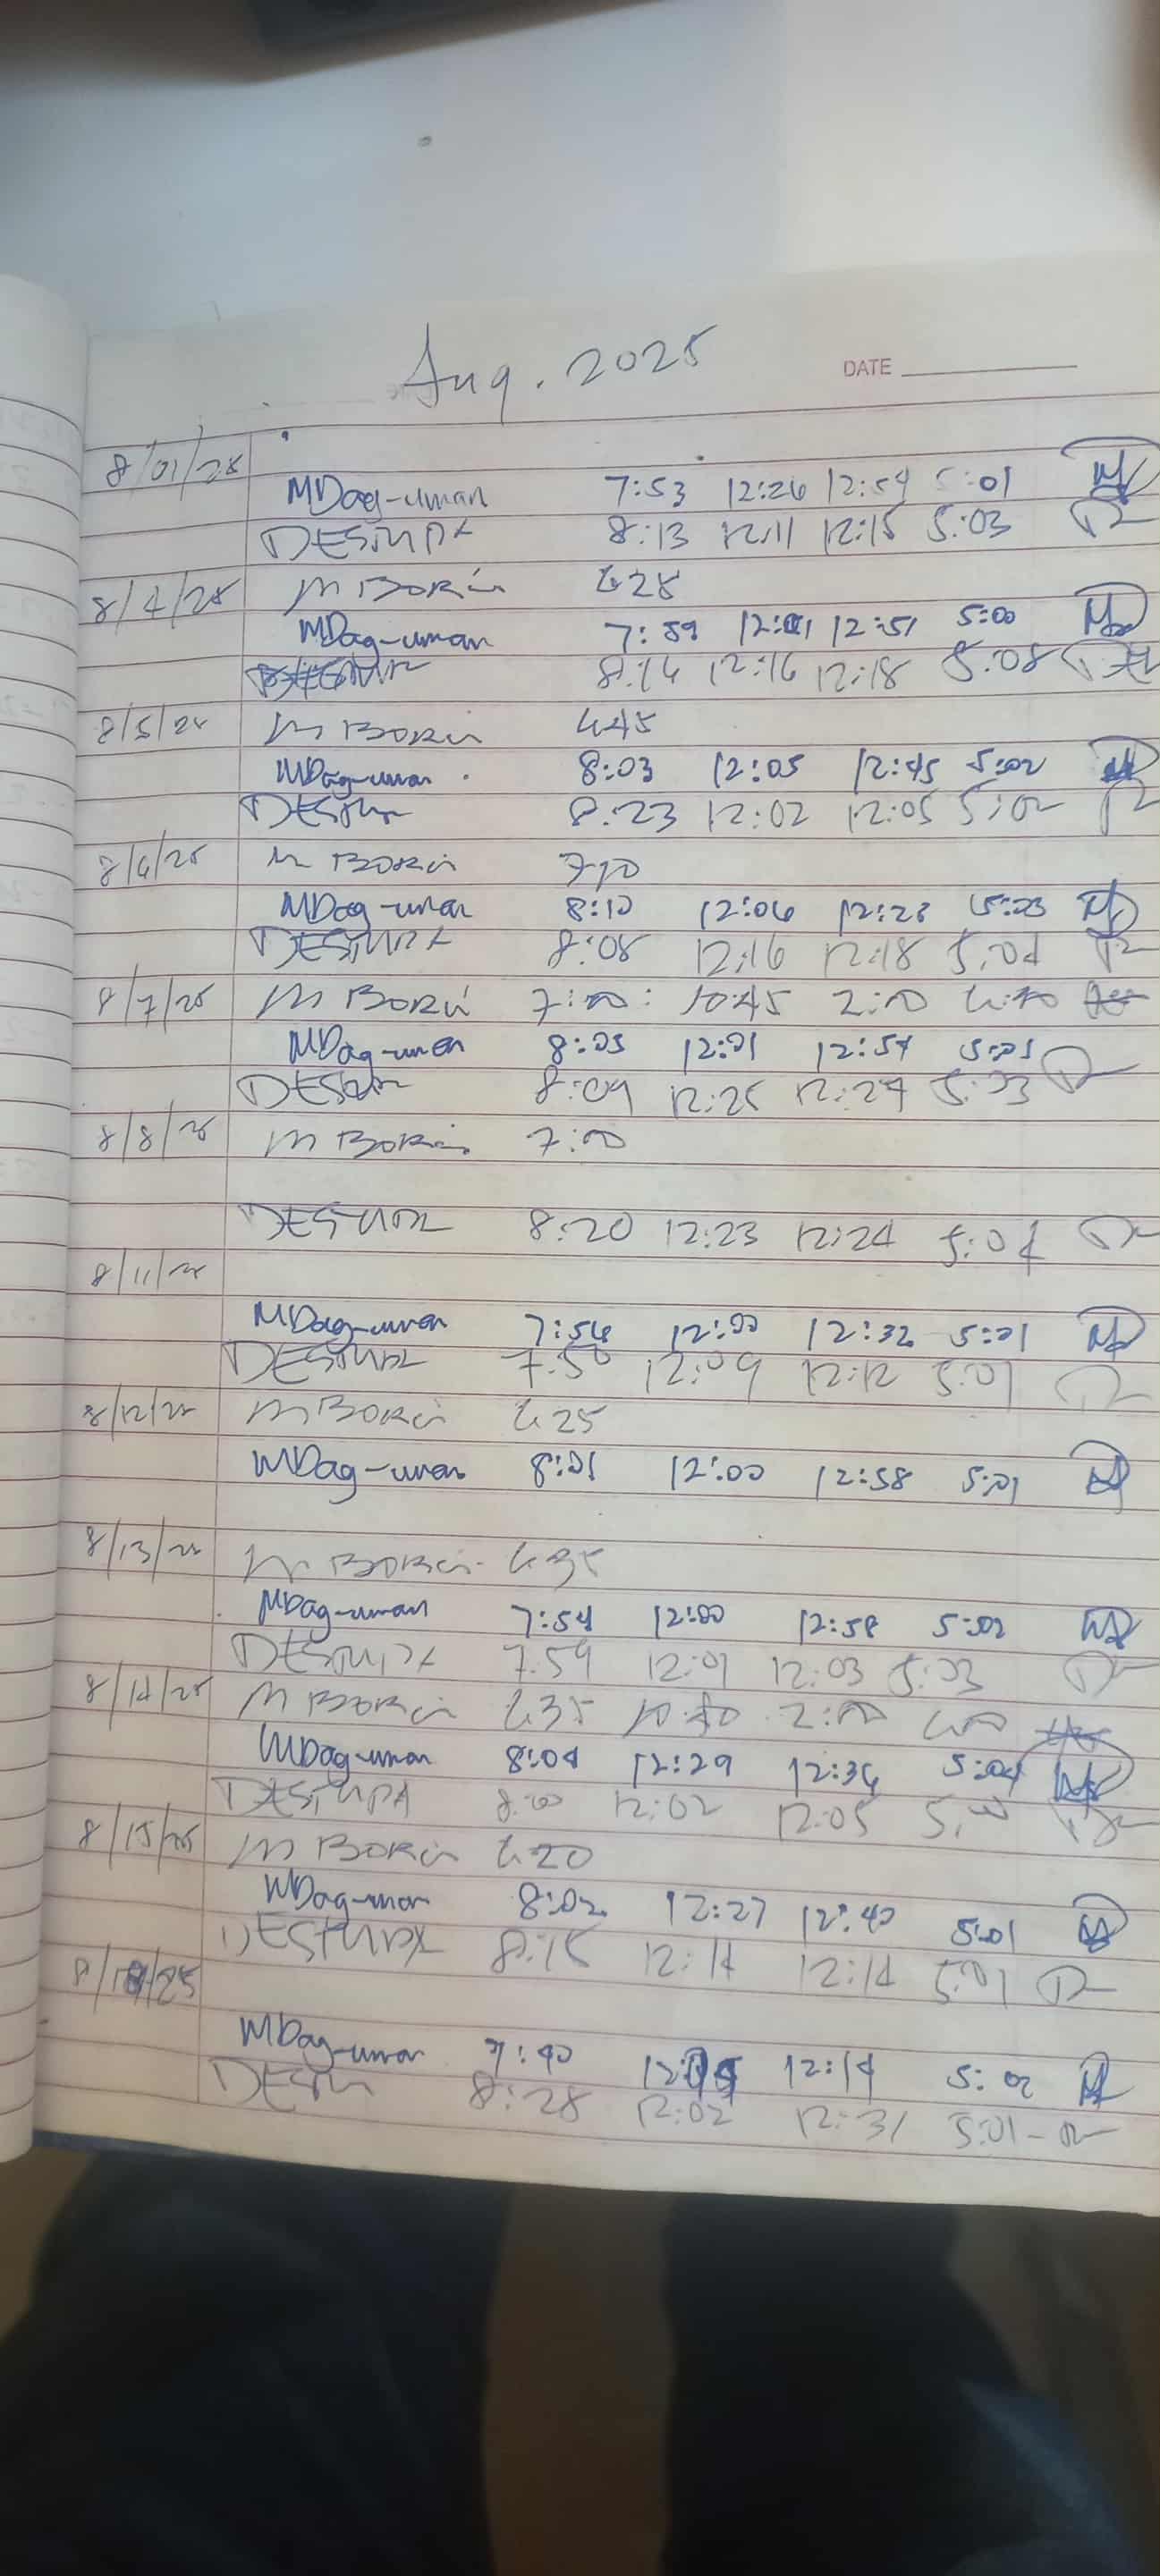 Aug. 2025
DATE
8/01/25
MDag-uman 7:53 12:26 12:54 5:01
DESTURA 8:13 12:11 12:15 5:03
8/4/25 M BORCI 6:28
MDag-uman 7:59 12:01 12:51 5:00
8:14 12:16 12:18 5:08
8/5/25 M BORCI 6:45
MDag-uman 8:03 12:05 12:45 5:02
8:23 12:02 12:05 5:02
8/6/25 M BORCI 7:10
MDag-uman 8:10 12:06 5:03
DESTURA 8:08 12:16 12:18 5:04
8/7/25 M BORCI 7:00 10:45 2:00
MDag-uman 8:05 12:01 12:54 5:01
8:09 12:25 12:27 5:03
8/8/25 M BORCI 7:00
DESTURA 8:20 12:23 12:24 5:04
8/11/25
MDag-uman 7:56 12:00 12:32 5:01
DESTURA 12:09 12:12 5:01
8/12/25 M BORCI 6:25
MDag-uman 8:01 12:00 12:58 5:01
8/13/25 M BORCI 6:35
MDag-uman 7:54 12:00 12:58 5:02
DESTURA 7:59 12:01 12:03 5:03
8/14/25 M BORCI 6:35 2:00
MDag-uman 8:04 12:29 12:36 5:04
DESTURA 8:00 12:02 12:05 5:00
8/15/25 M BORCI 6:20
MDag-uman 8:02 12:27 12:40 5:01
DESTURA 8:15 12:14 12:14 5:01
8/18/25
MDag-uman 7:40 12:14 5:02
8:28 12:02 12:31 5:01